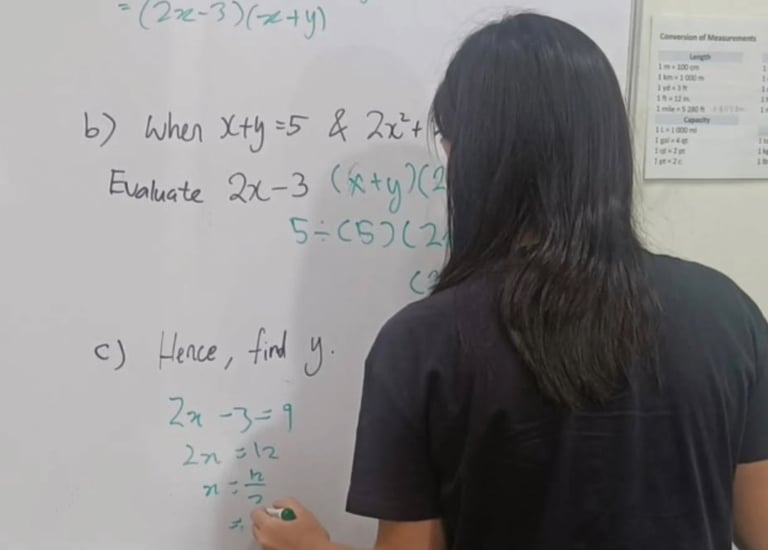 = (2x-3)(x+y)
b) When x+y=5 & 2x²+
Evaluate 2x-3 (x+y)(2
5÷(5)(2
(2
c) Hence, find y.
2x -3=9
2x = 12
x = 12/2
=
Conversion of Measurements
Length
1 m = 100 cm
1 km = 1 000 m
1 yd = 3 ft
1 ft = 12 in
1 mile = 5 280 ft
Capacity
1 L = 1 000 ml
1 gal = 4 qt
1 qt = 2 pt
1 pt = 2 c